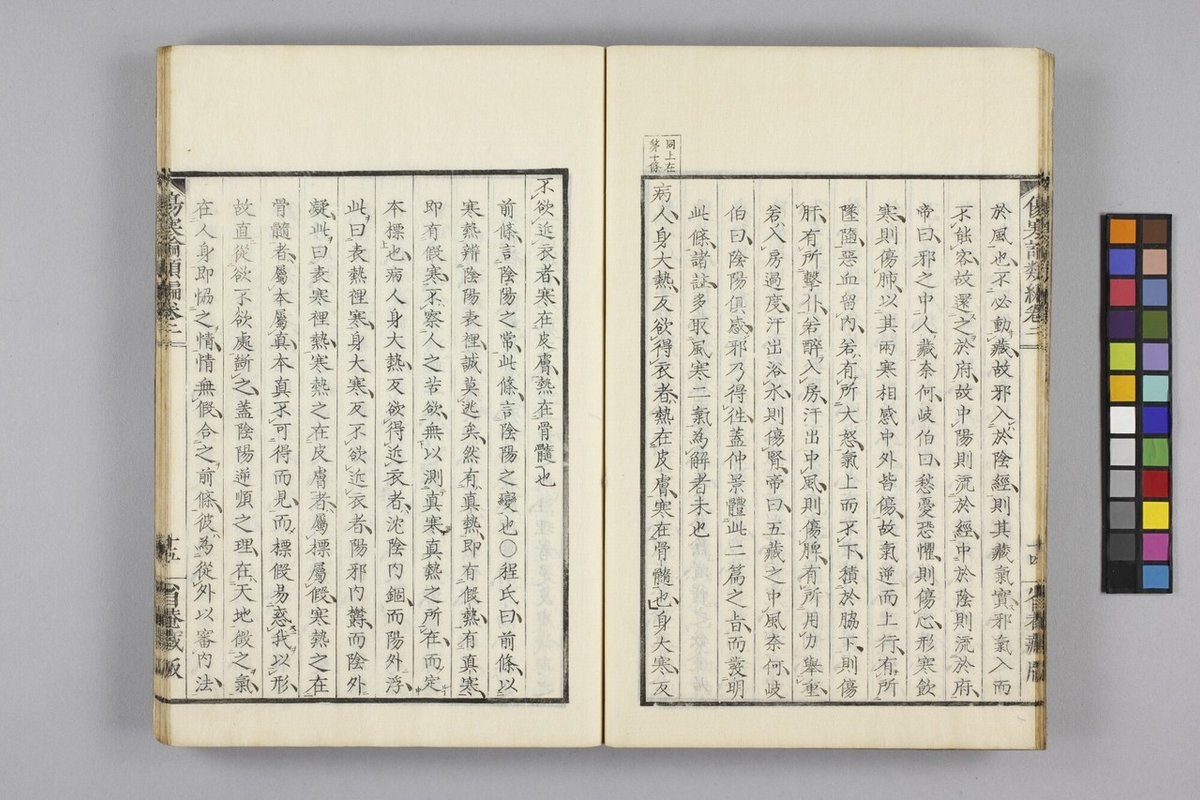 同上在
第十條
於風也不必動藏故邪入於陰經則其藏氣實邪氣入而
不能客故還之於府故中陽則流於經中於陰則流於府
帝曰邪之中人藏奈何岐伯曰愁憂恐懼則傷心形寒飲
寒則傷肺以其兩寒相感中外皆傷故氣逆而上行有所
墜隨惡血留內若有所大怒氣上而不下積於脇下則傷
肝有所擊仆若醉入房汗出中風則傷脾有所用力舉重
若入房過度汗出浴水則傷腎帝曰五藏之中風奈何岐
伯曰陰陽俱感邪乃得徃蓋仲景體此二篇之旨而發明
此條諸註多取風寒二氣為解者未也
病人身大熱反欲得衣者熱在皮膚寒在骨髓也身大寒反
不欲近衣者寒在皮膚熱在骨髓也
前條言陰陽之常此條言陰陽之變也○程氏曰前條以
寒熱辨陰陽表裡誠莫逃矣然有真熱即有假熱有真寒
即有假寒不察人之苦欲無以測真寒真熱之所在而定
本標也病人身大熱反欲得近衣者沈陰內錮而陽外浮
此曰表熱裡寒身大寒反不欲近衣者陽邪內欝而陰外
凝此曰表寒裡熱寒熱之在皮膚者屬標屬假寒熱之在
骨髓者屬本屬真本真不可得而見而標假易惑我以形
故直從欲不欲處斷之蓋陰陽逆順之理在天地徵之氣
在人身即協之情情無假合之前條彼為從外以審內法
傷寒論類編卷二
十五
省菴藏版